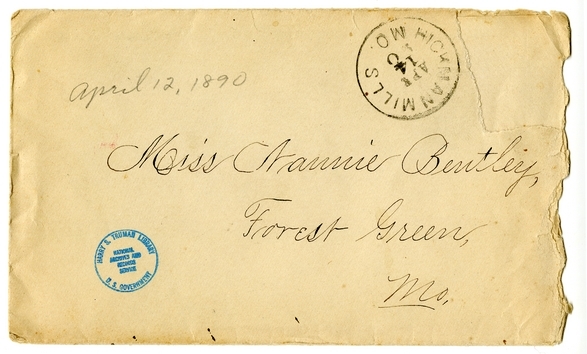 April 12, 1890
HICKMAN MILLS MO.
APR
14
Miss Nannie Bentley,
Forest Green,
Mo.
HARRY S. TRUMAN LIBRARY
NATIONAL
ARCHIVES AND
RECORDS
SERVICE
U. S. GOVERNMENT